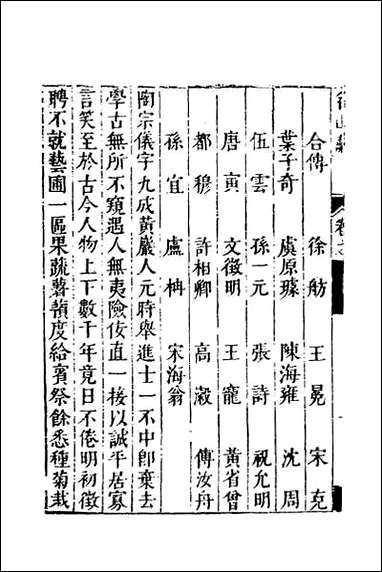 合傳　徐舫　王冕　宋克
葉子奇　虞原璩　陳海雍　沈周
伍雲　孫一元　張詩　祝允明
唐寅　文徵明　王寵　黃省曾
都穆　許相卿　高瀔　傅汝舟
孫宜　盧柟　宋海翁
陶宗儀字九成黃巖人元時舉進士一不中卽棄去
學古無所不窺遇人無夷險伉直一接以誠平居寡
言笑至於古今人物上下數千年竟日不倦明初徵
聘不就藝圃一區果蔬薯蕷度給賓祭餘悉種菊栽